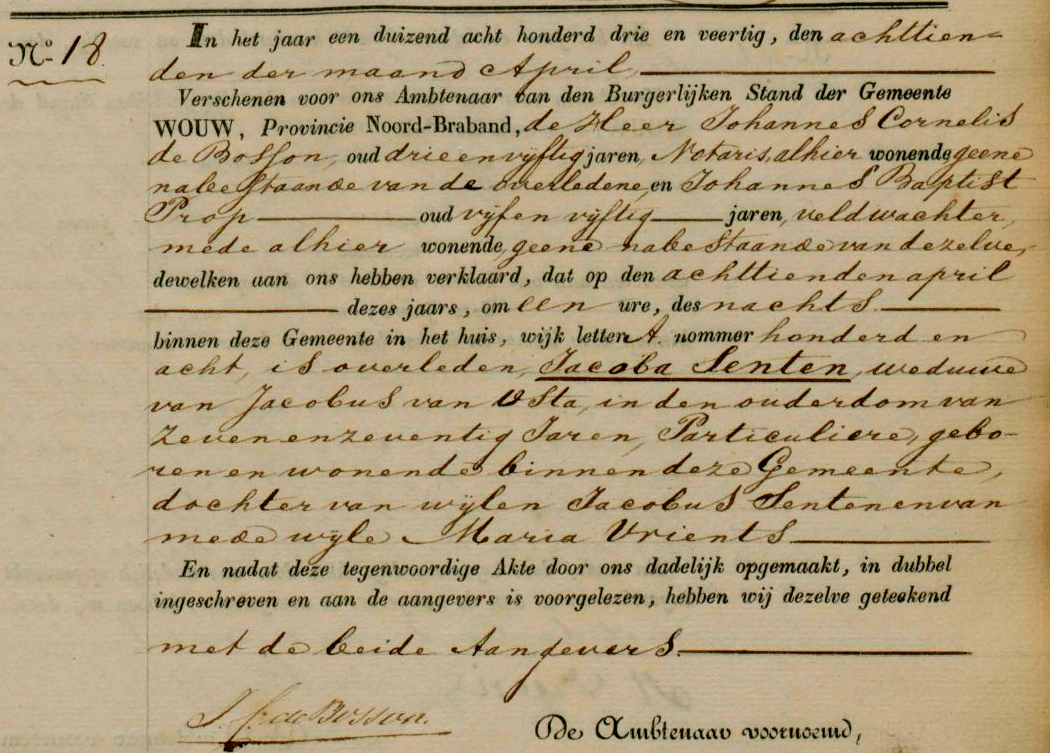 No 18.
In het jaar een duizend acht honderd drie en veertig, den achttien=
den der maand April
Verschenen voor ons Ambtenaar van den Burgerlijken Stand der Gemeente
WOUW, Provincie Noord-Braband, de Heer Johannes Cornelis
de Bosson, oud drieenvijftig jaren, Notaris, alhier wonende geene
nabestaande van de overledene, en Johannes Baptist
Prop oud vijfen vijftig jaren, veldwachter,
mede alhier wonende, geene nabestaande van dezelve,
dewelken aan ons hebben verklaard, dat op den achttienden april
dezes jaars, om een ure, des nachts
binnen deze Gemeente in het huis, wijk letter A. nommer honderd en
acht, is overleden, Jacoba Senten, weduwe
van Jacobus van Osta, in den ouderdom van
zevenenzeventig Jaren, Particuliere, gebo-
ren en wonende binnen deze Gemeente,
dochter van wijlen Jacobus Senten en van
mede wijle Maria Vrients
En nadat deze tegenwoordige Akte door ons dadelijk opgemaakt, in dubbel
ingeschreven en aan de aangevers is voorgelezen, hebben wij dezelve geteekend
met de beide Aangevers.
J. C. de Bosson.
De Ambtenaar voornoemd,